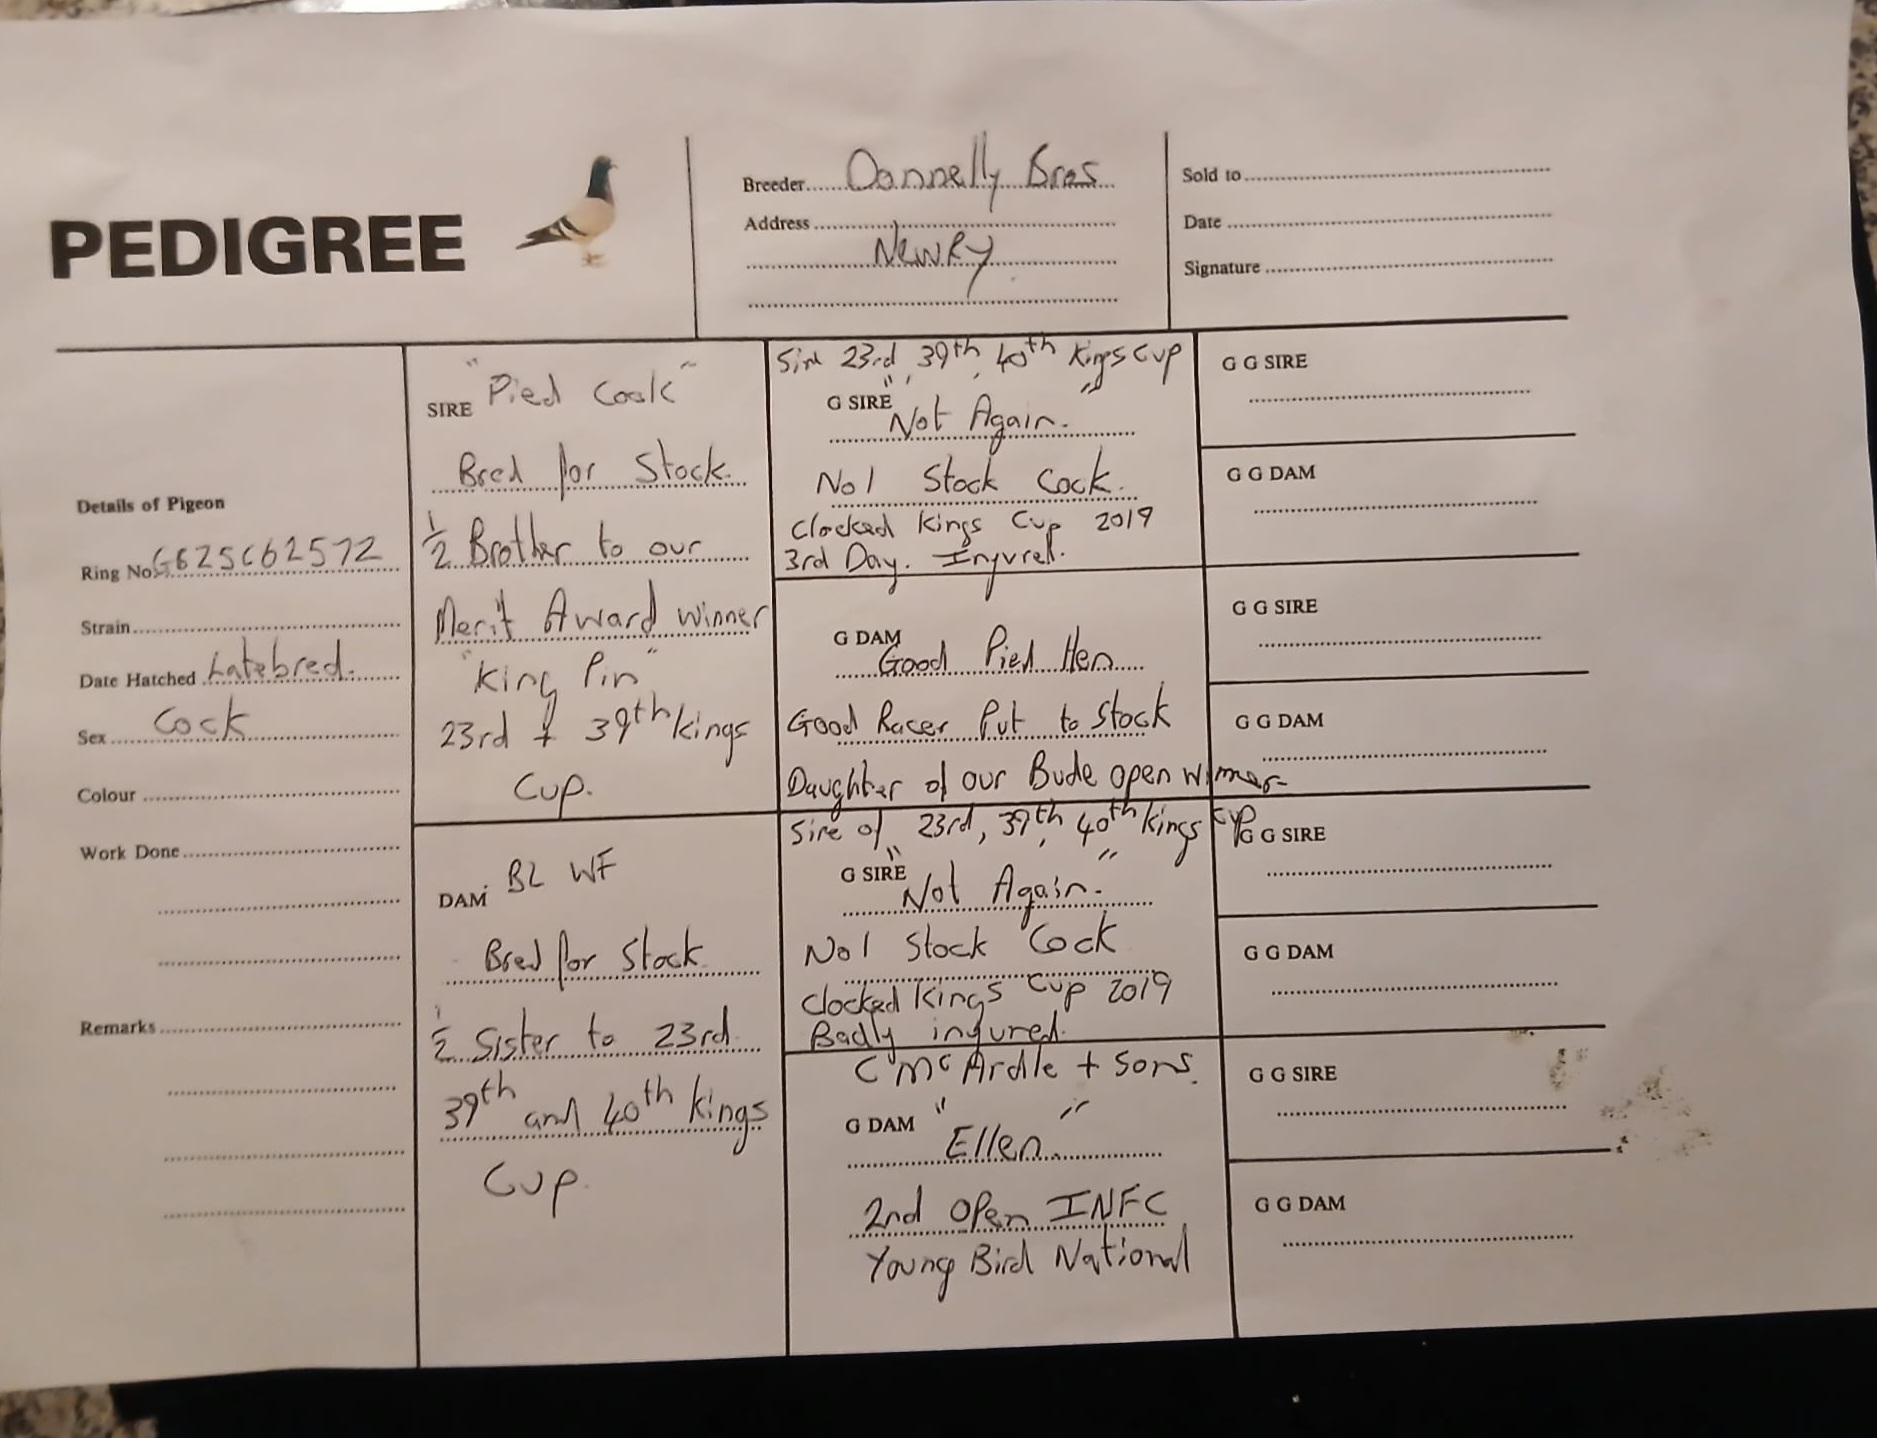 PEDIGREE
Breeder Donnelly Bros
Address
Newry
Sold to
Date
Signature
Details of Pigeon
Ring No GB25C62572
Strain
Date Hatched Latebred.
Sex Cock
Colour
Work Done
Remarks
SIRE "Pied Cock"
Bred for Stock
1/2 Brother to our
Merit Award winner
"King Pin"
23rd + 39th Kings
Cup.
DAM BL WF
Bred for Stock
1/2 Sister to 23rd
39th and 40th Kings
Cup.
Sire 23rd, 39th, 40th Kings Cup
G SIRE "Not Again."
No1 Stock Cock.
Clocked Kings Cup 2019
3rd Day. Injured.
G DAM Good Pied Hen
Good Racer Put to Stock
Daughter of our Bude open winner
Sire of 23rd, 39th, 40th Kings Cup
G SIRE "Not Again."
No1 Stock Cock
Clocked Kings Cup 2019
Badly injured.
C McArdle + Sons.
G DAM "Ellen"
2nd Open INFC
Young Bird National
G G SIRE
G G DAM
G G SIRE
G G DAM
G G SIRE
G G DAM
G G SIRE
G G DAM